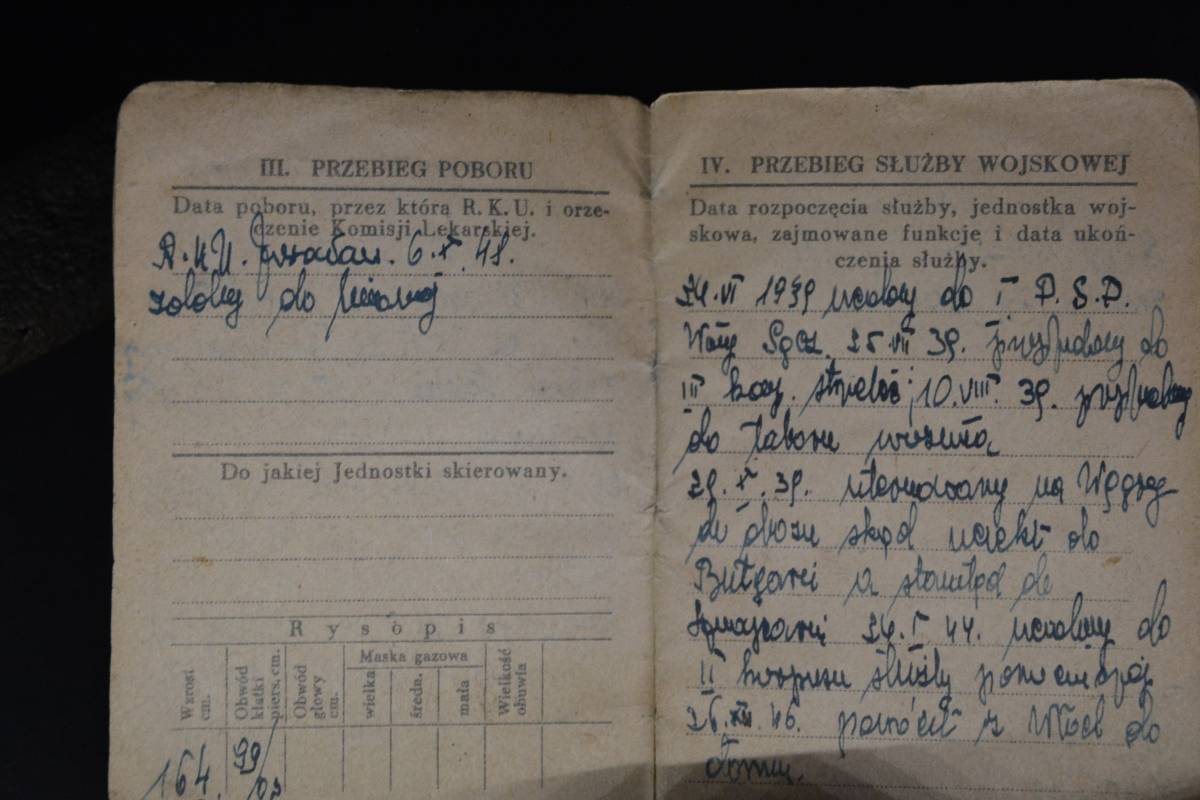 III. PRZEBIEG POBORU
Data poboru, przez którą R. K. U. i orze-
czenie Komisji Lekarskiej.
R.K.U. 6. X. 48.
zdolny do
Do jakiej Jednostki skierowany.
Rysopis
Wzrost cm.
Obwód klatki piers. cm.
Obwód głowy cm.
Maska gazowa
wielka
średn.
mała
Wielkość obuwia
164
99/93
IV. PRZEBIEG SŁUŻBY WOJSKOWEJ
Data rozpoczęcia służby, jednostka woj-
skowa, zajmowane funkcje i data ukoń-
czenia służby.
24. VI 1939 wcielony do I P. S. P.
Nowy Sącz 25 VII 39. przydzielony do
III kom. 10. VIII. 39. przydzielony
do taboru
29. X. 39. internowany na Węgrzech
do obozu skąd uciekł do
Bułgarii a stamtąd do
24. I 44. wcielony do
II korpusu służby
26. XII. 46. powrócił z Włoch do
domu.